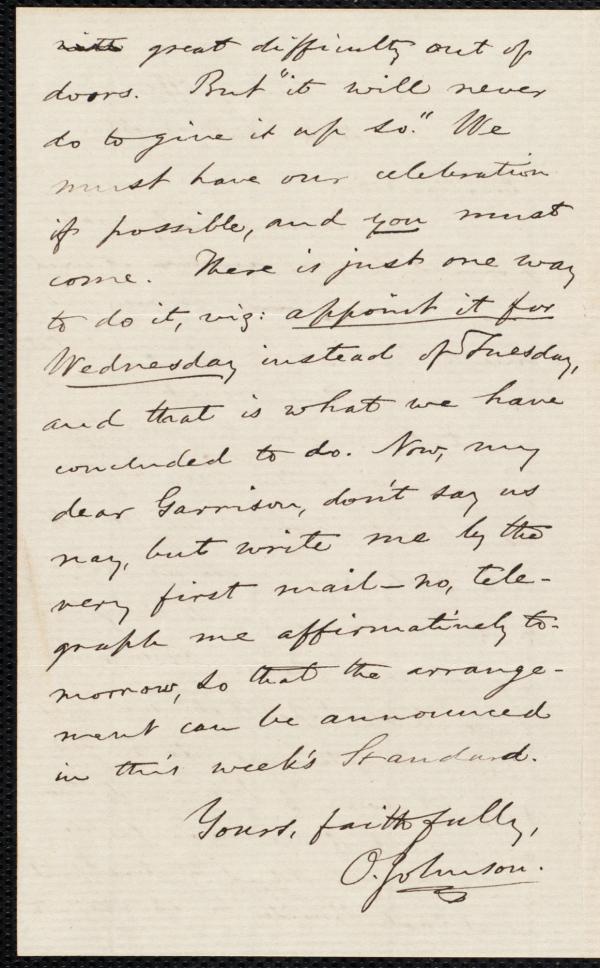 with great difficulty out of
doors. But "it will never
do to give it up so." We
must have our celebration
if possible, and you must
come. There is just one way
to do it, viz: appoint it for
Wednesday instead of Tuesday,
and that is what we have
concluded to do. Now, my
dear Garrison, don't say us
nay, but write me by the
very first mail—no, tele-
graph me affirmatively to-
morrow, so that the arrange-
ment can be announced
in this week's Standard.
Yours, faithfully,
O. Johnson.